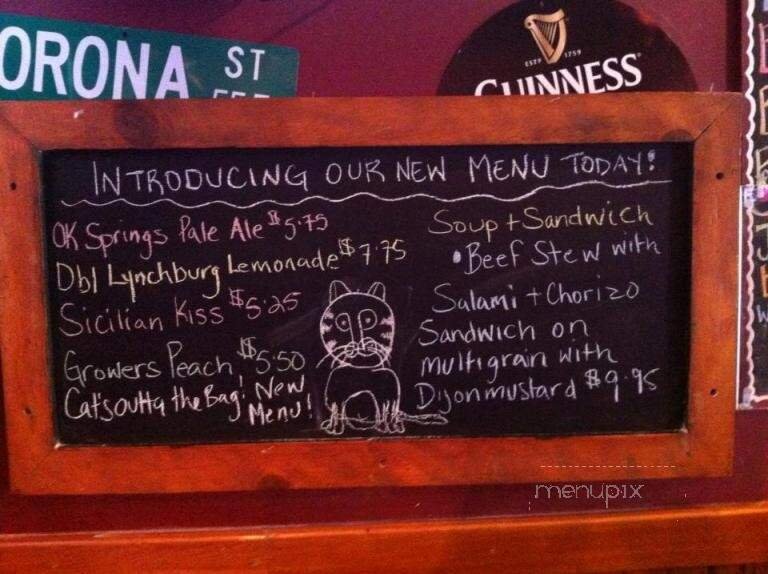 ORONA ST
ESTD 1759
GUINNESS
INTRODUCING OUR NEW MENU TODAY!
OK Springs Pale Ale $5.75
Dbl Lynchburg Lemonade $7.75
Sicilian Kiss $5.25
Growers Peach $5.50
Cat's outta the Bag! New
Menu!
Soup + Sandwich
• Beef Stew with
Salami + Chorizo
Sandwich on
multigrain with
Dijon mustard $9.95
menupix